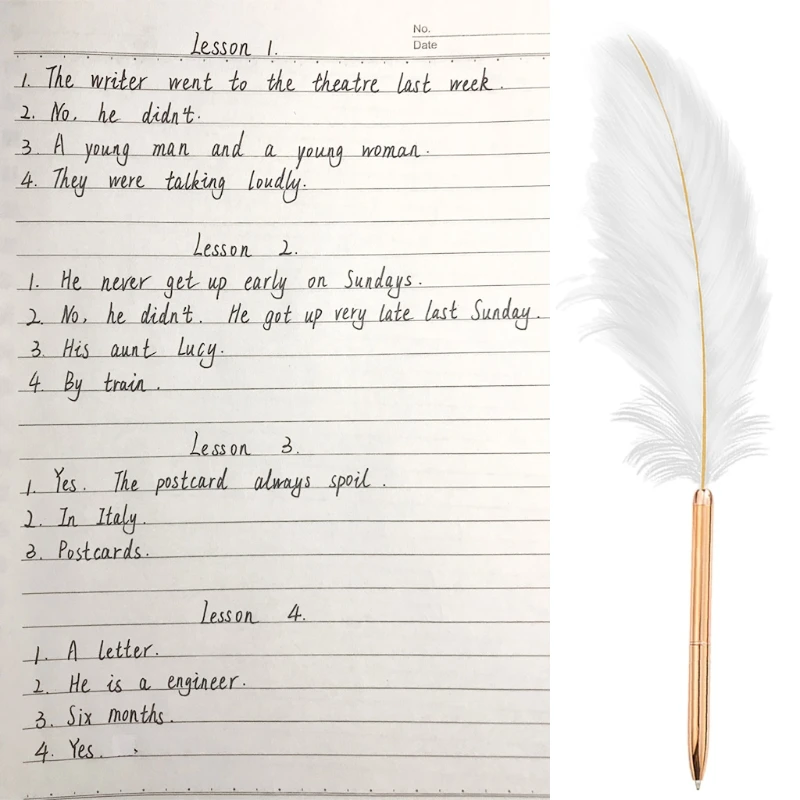 No.
Date
Lesson 1.
1. The writer went to the theatre last week.
2. No, he didn't.
3. A young man and a young woman.
4. They were talking loudly.
Lesson 2.
1. He never get up early on Sundays.
2. No, he didn't. He got up very late last Sunday.
3. His aunt Lucy.
4. By train.
Lesson 3.
1. Yes. The postcard always spoil.
2. In Italy.
3. Postcards.
Lesson 4.
1. A letter.
2. He is a engineer.
3. Six months.
4. Yes.